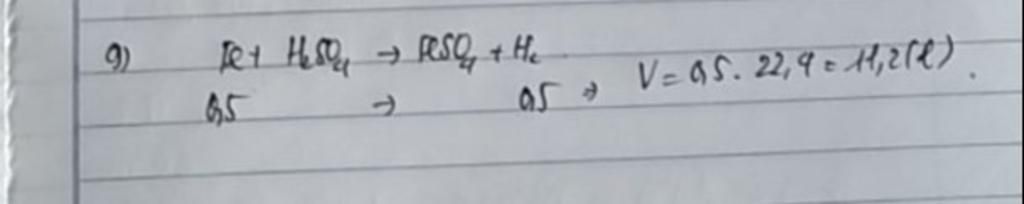 9) Fe + H₂SO₄ → FeSO₄ + H₂
0,5 → 0,5 → V = 0,5 . 22,4 = 11,2 (l).